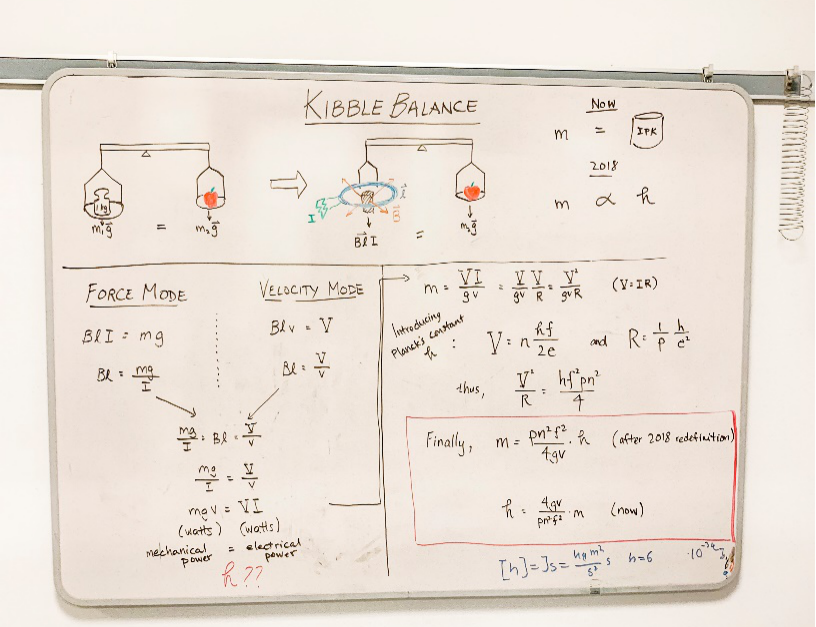 KIBBLE BALANCE
Now
m = IPK
2018
m ∝ h
1 kg
m₁g⃗ = m₂g⃗
I l⃗ B⃗
B⃗lI = m₂g⃗
FORCE MODE
BlI = mg
Bl = mg/I
VELOCITY MODE
Blv = V
Bl = V/v
mg/I = Bl = V/v
mg/I = V/v
mgv = VI
(watts) (watts)
mechanical power = electrical power
h??
m = VI/gv = V/gv V/R = V²/gvR (V=IR)
Introducing
Planck's constant
h :
V = n hf/2e and R = 1/p h/e²
thus, V²/R = hf²pn²/4
Finally, m = pn²f²/4gv · h (after 2018 redefinition)
h = 4gv/pn²f² · m (now)
[h] = Js = kg m²/s² s h=6 ·10⁻³⁴ J